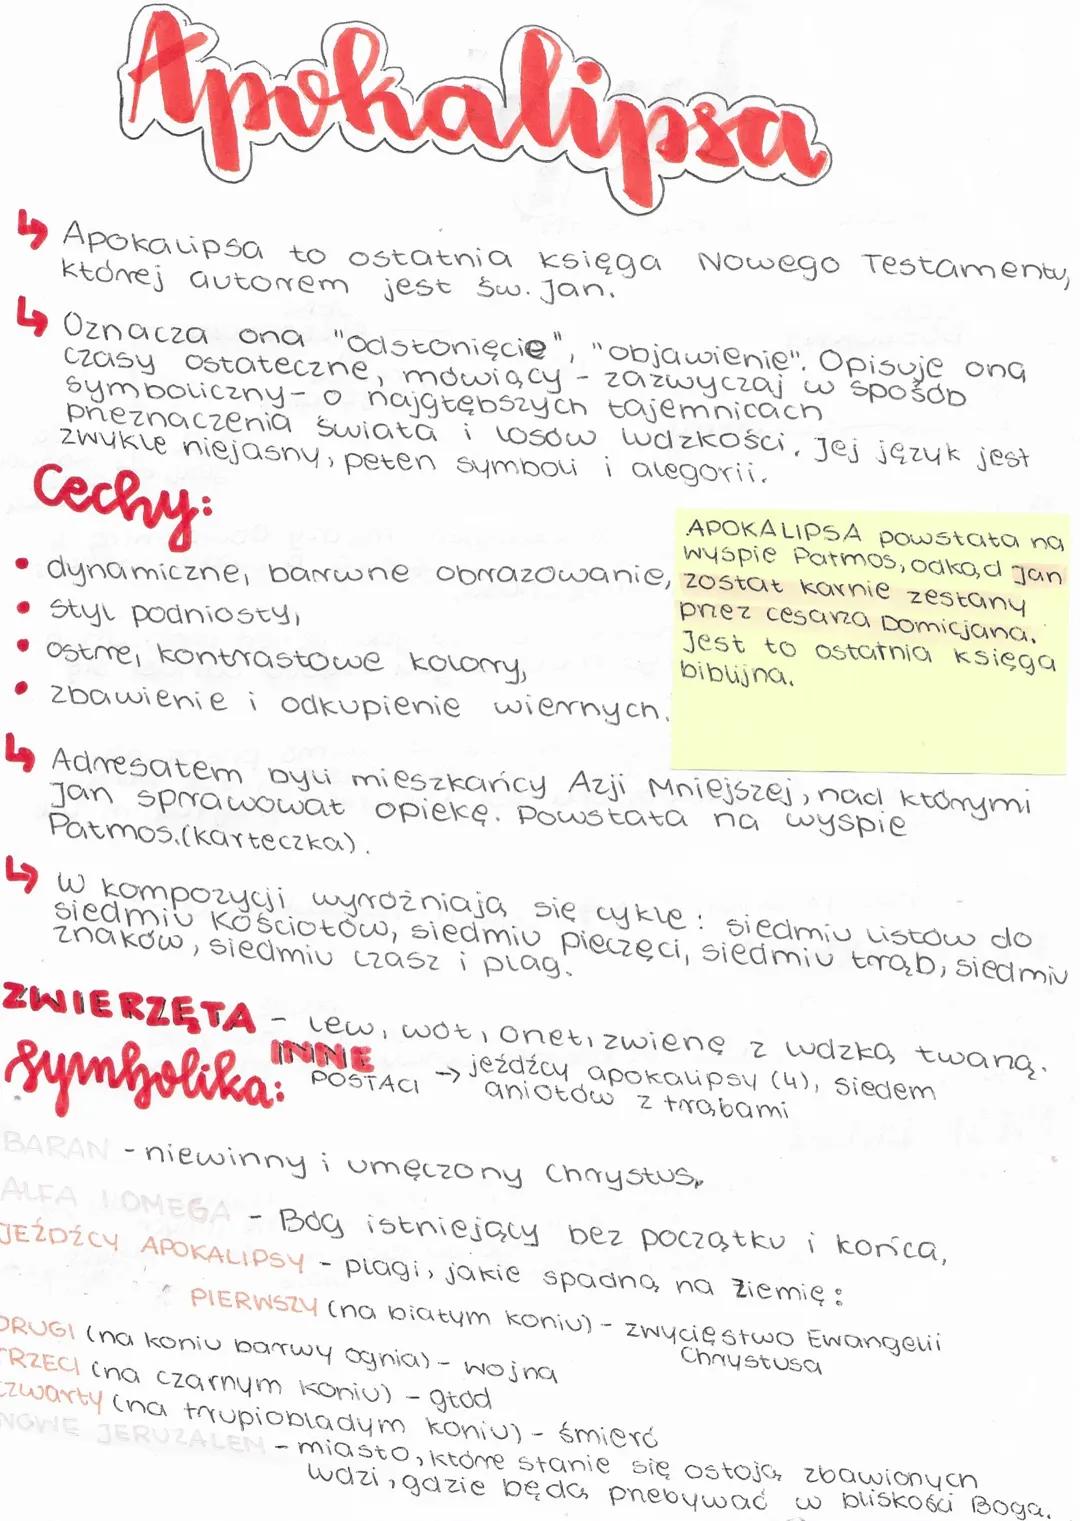 Apokalipsa
↳ Apokalipsa to ostatnia księga Nowego Testamentu,
której autorem jest św. Jan.
↳ Oznacza ona "odsłonięcie", "objawienie". Opisuje ona
czasy ostateczne, mówiący - zazwyczaj w sposób
symboliczny - o najgłębszych tajemnicach
przeznaczenia świata i losów ludzkości. Jej język jest
zwykle niejasny, pełen symboli i alegorii.
Cechy:
• dynamiczne, barwne obrazowanie,
• styl podniosły,
• ostre, kontrastowe kolory,
• zbawienie i odkupienie wiernych.
APOKALIPSA powstała na
wyspie Patmos, odkąd Jan
został karnie zesłany
przez cesarza Domicjana.
Jest to ostatnia księga
biblijna.
↳ Adresatem byli mieszkańcy Azji Mniejszej, nad którymi
Jan sprawował opiekę. Powstała na wyspie
Patmos.(karteczka).
↳ W kompozycji wyróżniają się cykle: siedmiu listów do
siedmiu Kościołów, siedmiu pieczęci, siedmiu trąb, siedmiu
znaków, siedmiu czasz i plag.
ZWIERZĘTA - lew, wół, orzeł, zwierzę z ludzką twarzą.
Symbolika:
INNE
POSTACI → jeźdźcy apokalipsy (4), siedem
aniołów z trąbami
BARAN - niewinny i umęczony Chrystus,
ALFA I OMEGA - Bóg istniejący bez początku i końca,
JEŹDŹCY APOKALIPSY - plagi, jakie spadną na ziemię:
PIERWSZY (na białym koniu) - zwycięstwo Ewangelii
Chrystusa
DRUGI (na koniu barwy ognia) - wojna
TRZECI (na czarnym koniu) - głód
czwarty (na trupiobladym koniu) - śmierć
NOWE JERUZALEM - miasto, które stanie się ostoją zbawionych
ludzi, gdzie będą przebywać w bliskości Boga.